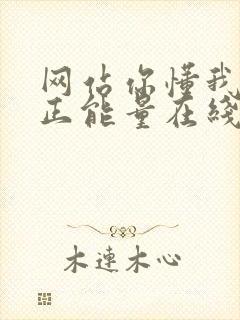 网站你懂我
正能量在线
木連木心